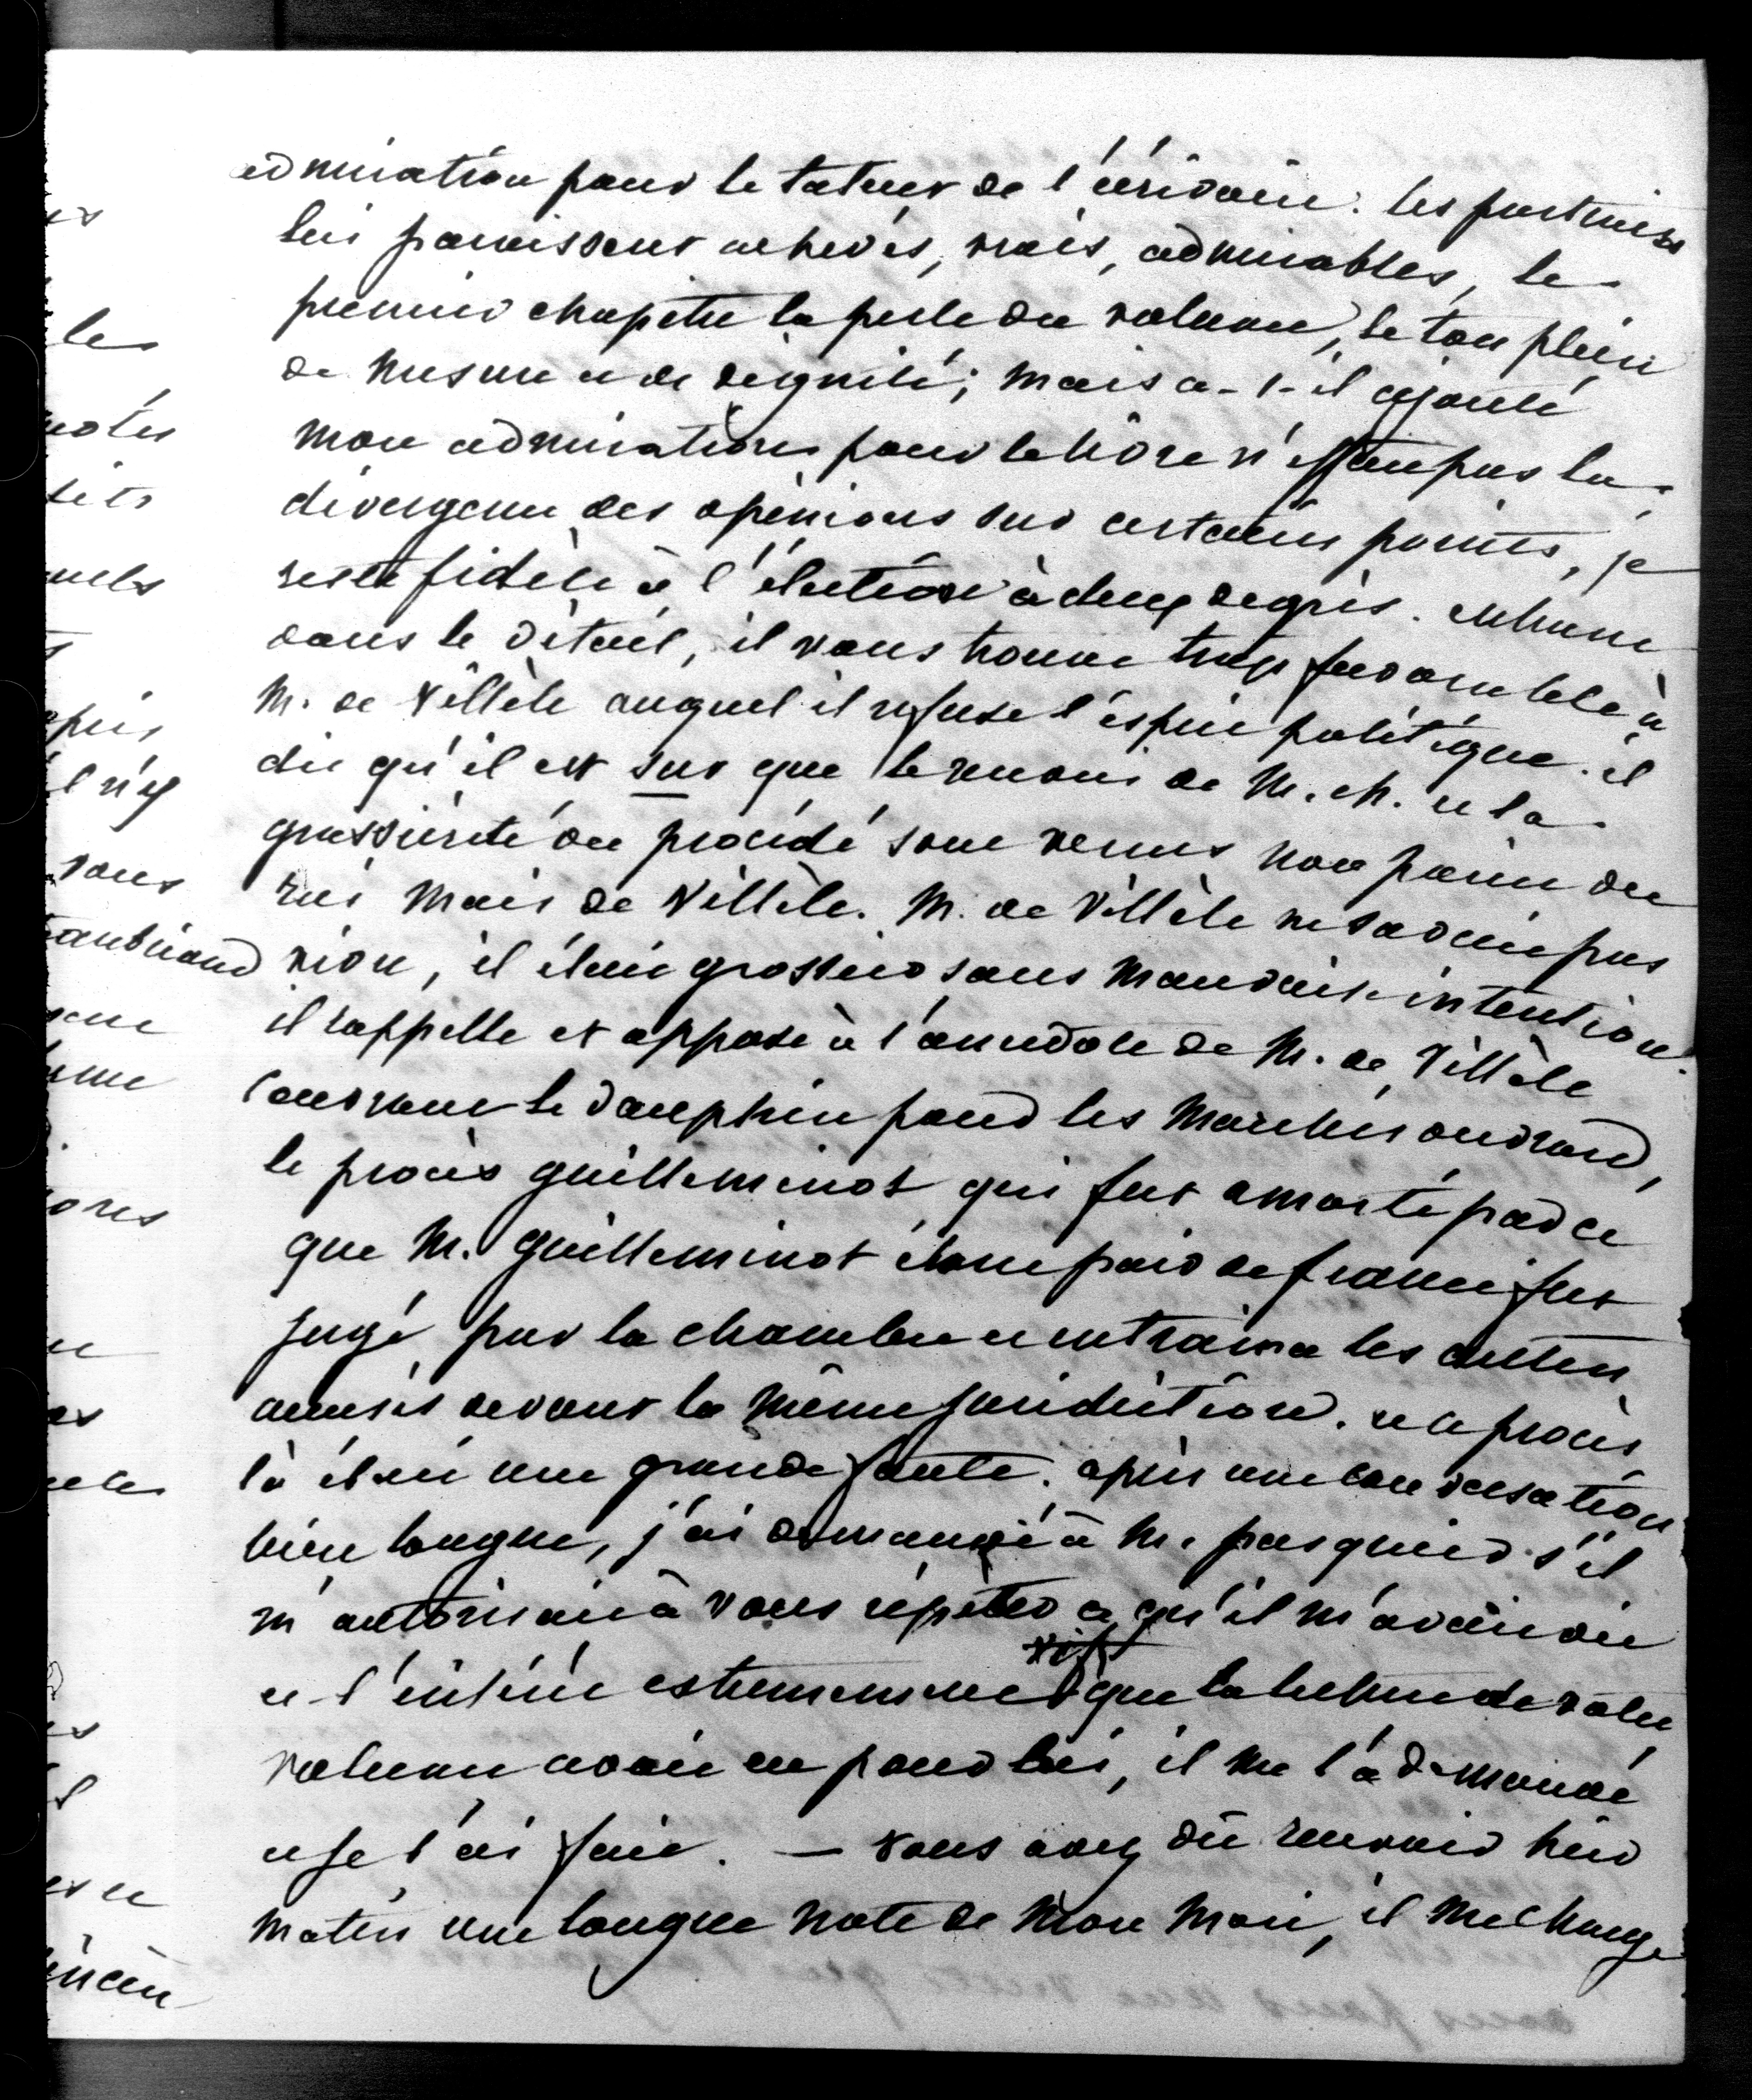 admiration pour le talent de l'écrivain. les portraits
lui paraissent achevés, vrais, admirables, le
premier chapitre la perle du volume, le ton plein
de mesure et de dignité; mais a-t-il ajouté
mon admiration pour le livre n'efface pas la
divergence des opinions sur certains points, je
reste fidèle à l'élection à deux degrés. 
dans le détail, il vous trouve trop favorable à
M. de Villèle auquel il refuse l'esprit politique. il
dit qu'il est sur que le renvoi de M. ch. et la
grossièreté du procédé sont venus non point du
roi mais de Villèle. M. de Villèle ne savait pas
vivre, il était grossier sans mauvaise intention.
il rappelle et oppose à l'anecdote de M. de Villèle
couvrant le dauphin pour les marchés ouvrard,
le procès guilleminot qui fut amorté parce
que M. guilleminot étant pair de france fut
jugé par la chambre et entraina les autres
accusés devant la même juridiction. et ce procès
là était une grande faute. après une conversation
bien longue, j'ai demandé à M. pasquier s'il
m'autorisait à vous répéter ce qu'il m'avait dit
et l'intérêt extremement vif que la lecture de votre
volume avait eu pour lui, il me l'a demandé
et je l'ai fait. — vous avez dû recevoir hier
matin une longue note de mon mari, il me charge
les
notes
sous